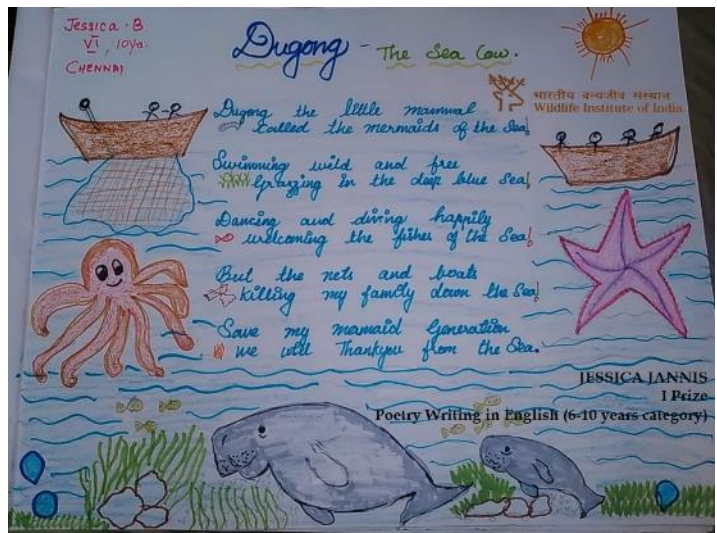 Jessica . B
VI, 10ya.
CHENNAI
Dugong - The Sea Cow.
भारतीय वन्यजीव संस्थान
Wildlife Institute of India
Dugong the little mammal
called the mermaids of the Sea!
Swimming wild and free
Grazzing in the deep blue Sea!
Dancing and diving happily
welcoming the fishes of the Sea!
But the nets and boats
killing my family down the Sea!
Save my mamaid Generation
we will Thankyou from the Sea.
JESSICA JANNIS
I Prize
Poetry Writing in English (6-10 years category)